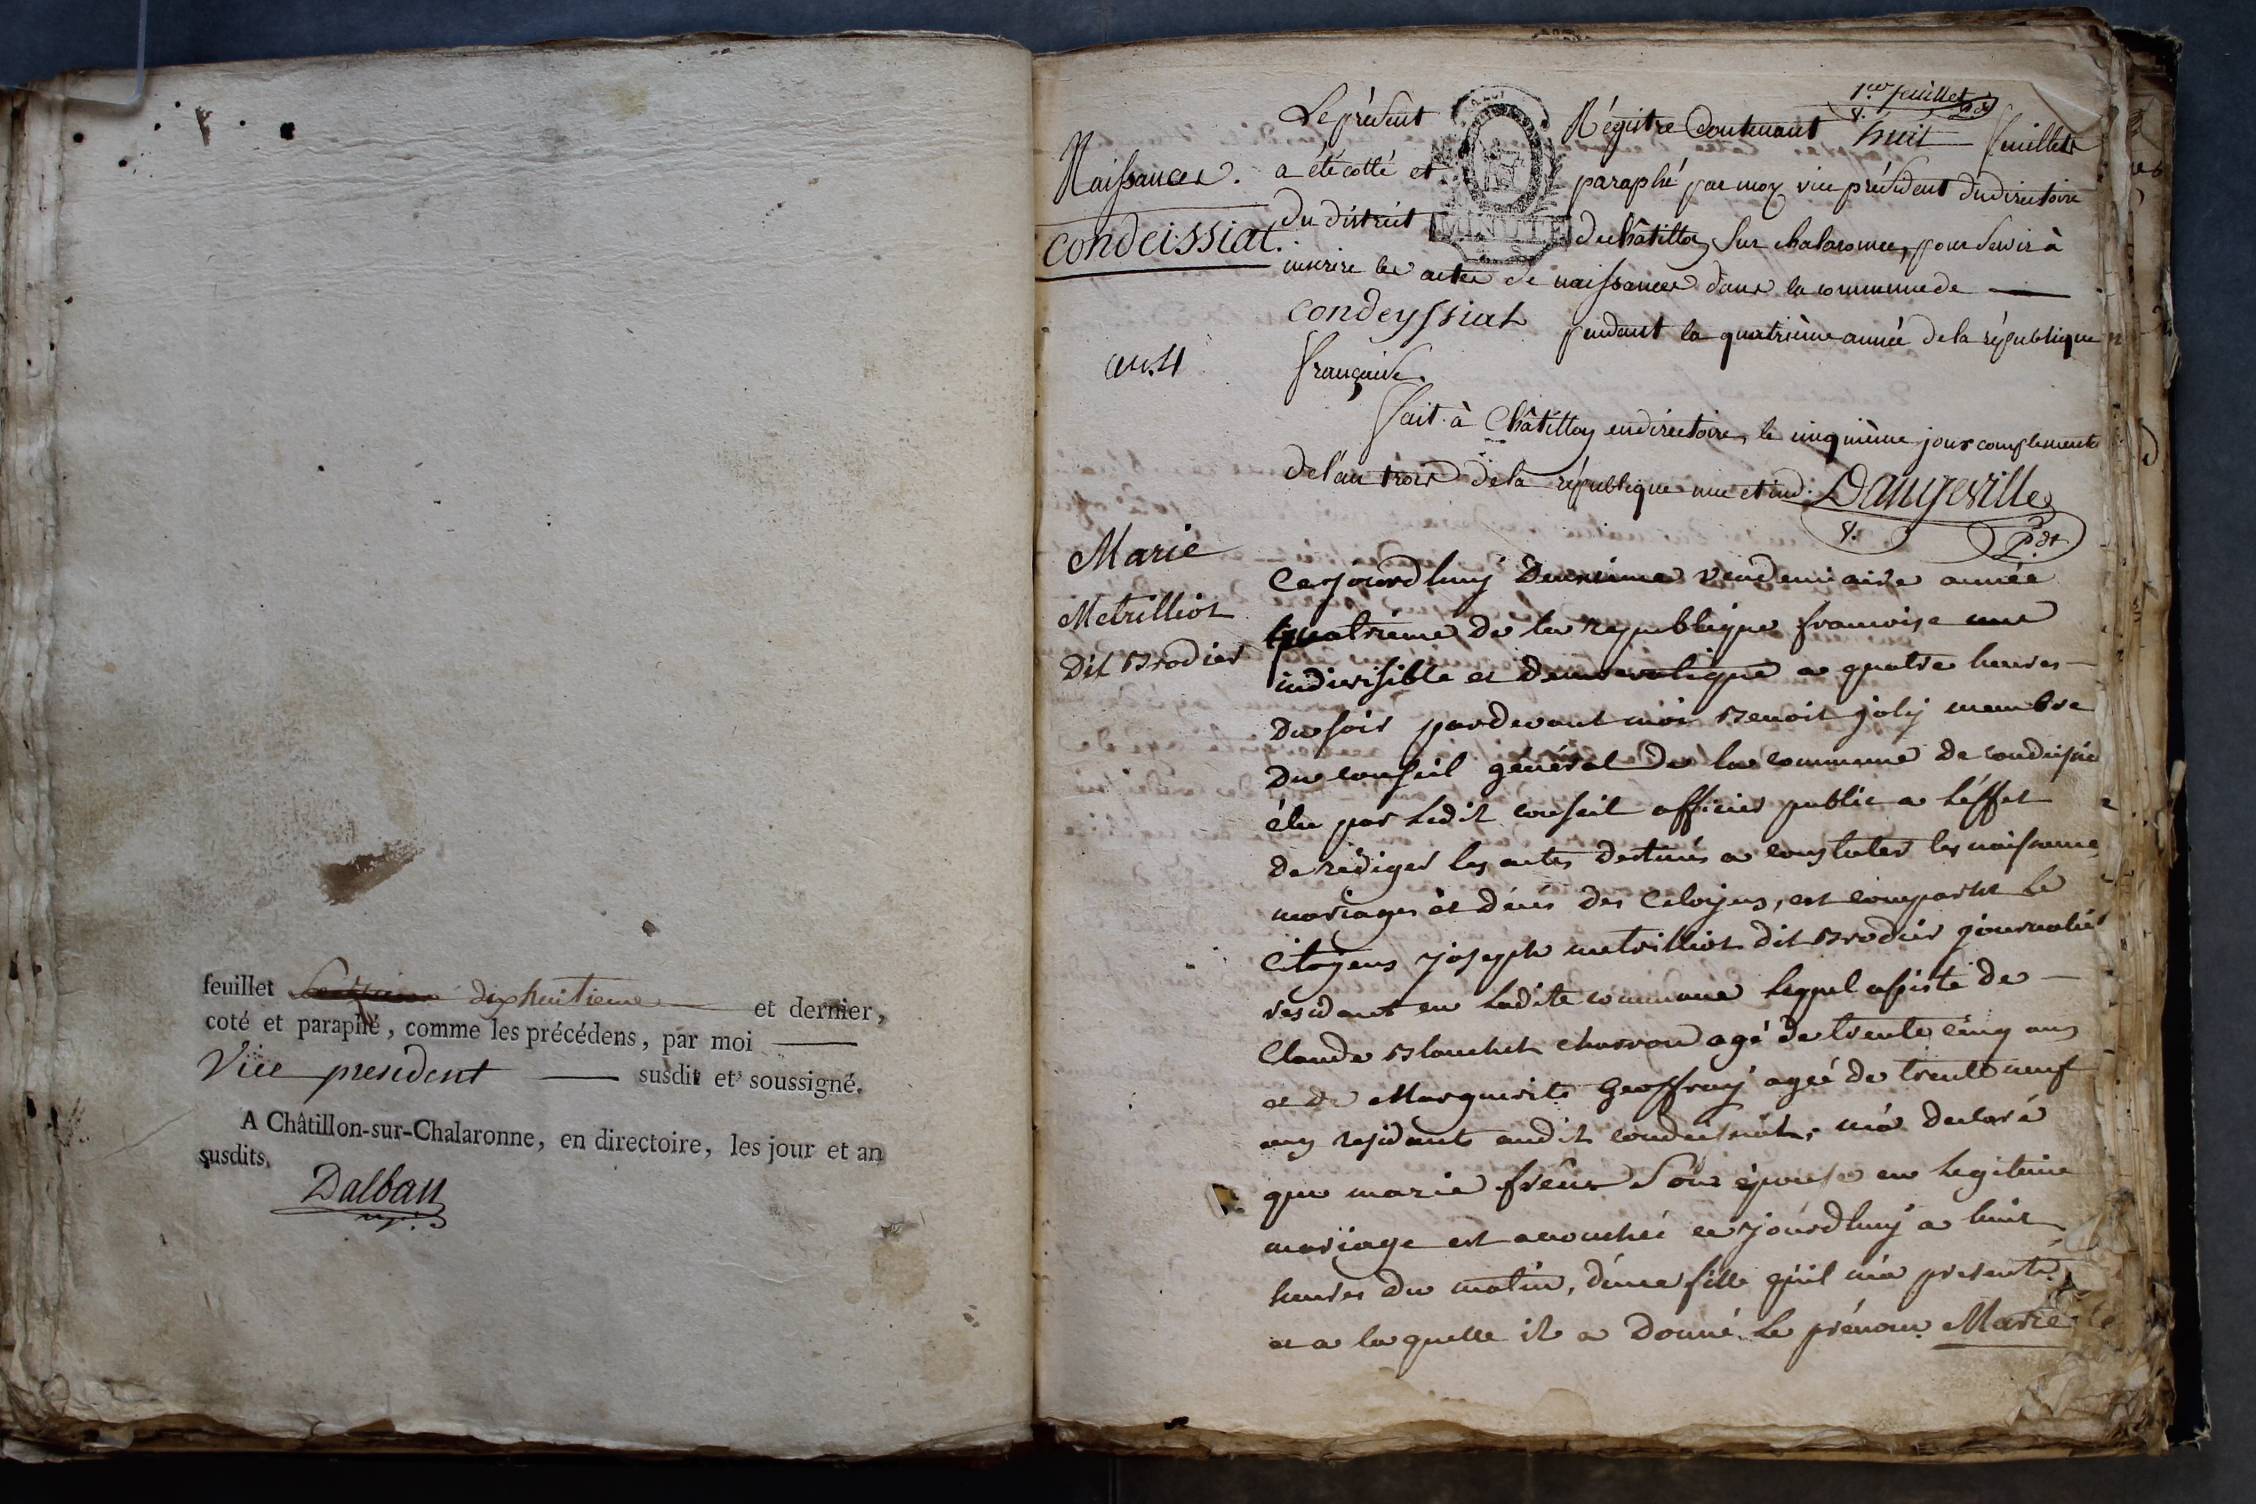 feuillet dixhuitieme et dernier,
coté et paraphé, comme les précédens, par moi
Vice president susdit et soussigné.
A Châtillon-sur-Chalaronne, en directoire, les jour et an
susdits.
Dalban
1er feuillet
Le présent Régistre Contenant huit feuillets
Naissances. a été cotté et paraphé par moy vice président du directoire
condeissiat. du district MINUTE de Châtillon Sur chalaronne, pour Servir à
inscrire les actes de naissances dans la commune de
condeyssiat pendant la quatrième année de la république
an.4 française.
fait à Châtillon en directoire, le cinquième jour complement
de l'an trois de la république une et ind. Dangeville
Pdt
Marie
Metrilliot
Dit Brodier
Cejourdhuy deuxieme vendemiaire année
quatrieme de la republique francoise une
indivisible et democratique a quatre heures
du soir pardevant moi Benoit joly membre
du conseil général de la commune de condeissia
élu par Ledit conseil officier public a L'éffet
de rédiger les actes destinés a constater les naissances
mariages et décés des Citoyens, est comparut Le
Citoyens joseph metrilliot dit Brodier journalié
residant en Ladite commune Lequel assisté de
Claude Blanchet charron agé de trente cinq ans
et de Marguerite Geoffray agée de trente neuf
ans residants audit condeissiat, m'a declaré
que marie fréne Son épouse en Legitime
mariage est accouchée cejourdhuy a huit
heures du matin, d'une fille qu'il m'a presenté
et a laquelle il a Donné Le prénom Marie